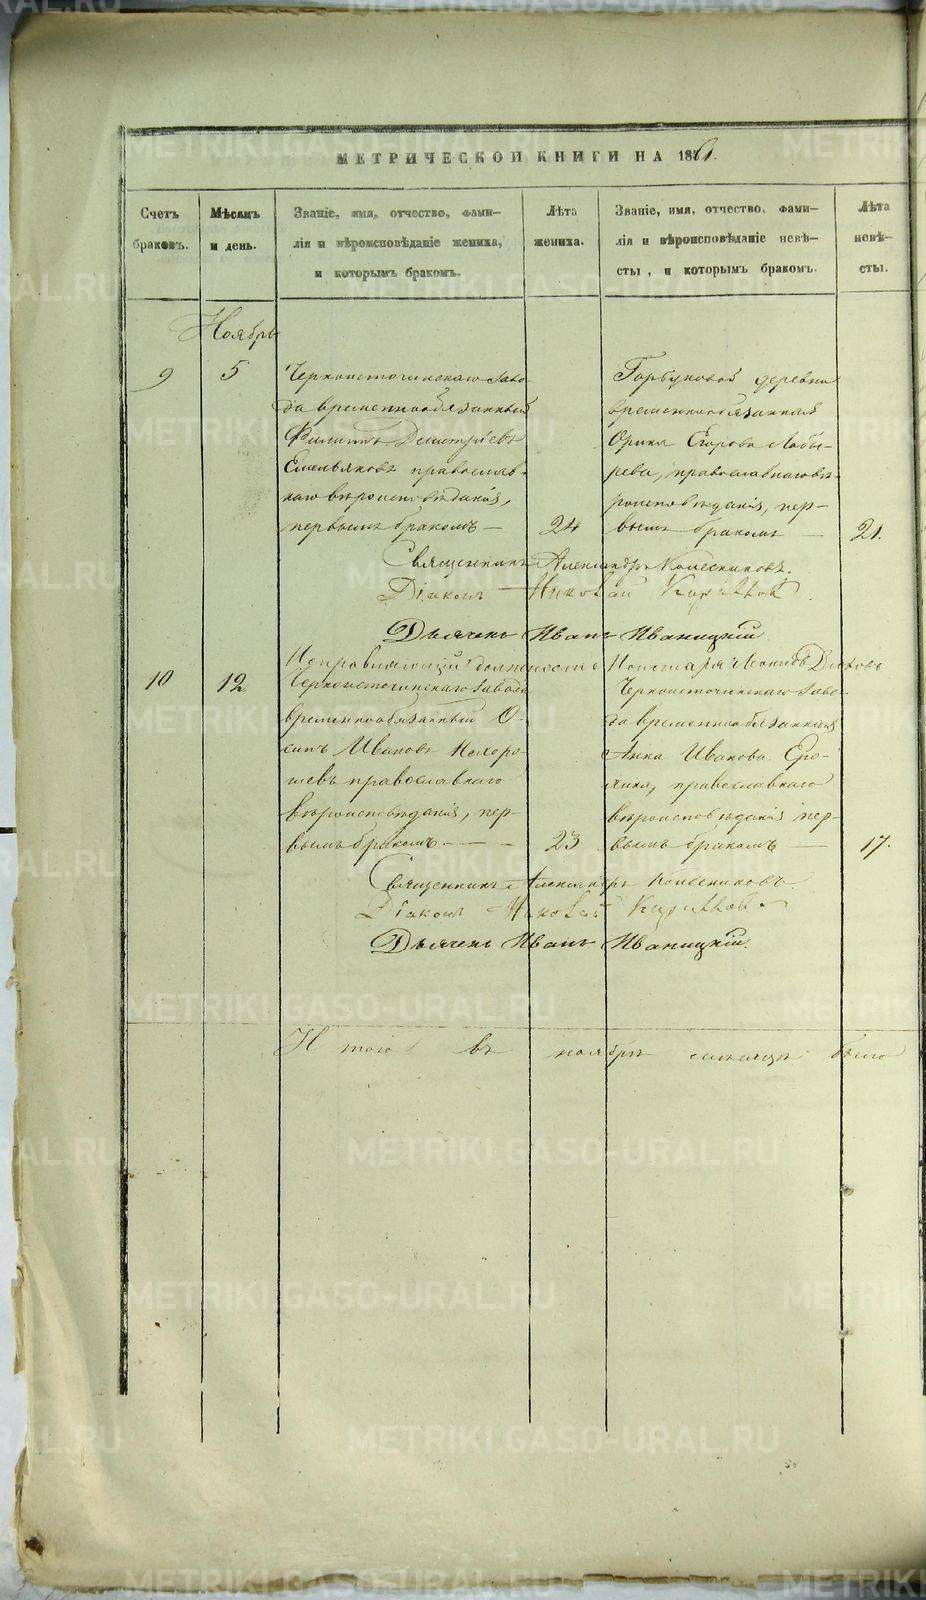 МЕТРИЧЕСКОЙ КНИГИ НА 1861.
Счетъ браковъ.
Мѣсяцъ и день.
Званіе, имя, отчество, фами-
лія и вѣроисповѣданіе жениха,
и которымъ бракомъ.
Лѣта жениха.
Званіе, имя, отчество, фами-
лія и вѣроисповѣданіе невѣ-
сты, и которымъ бракомъ.
Лѣта невѣ-
сты.
Ноябрь
9
5
Черноисточинскаго заво-
да временнообязанный
Филиппъ Дмитріевъ
Емельяновъ православ-
наго вѣроисповѣданія,
первымъ бракомъ —
24
Горбуновой деревни
временнообязанная
Ирина Егорова
рева, православнаго вѣ-
роисповѣданія, пер-
вымъ бракомъ —
21.
Священникъ Александръ Колесниковъ.
Діаконъ Николай
Дьячекъ Иванъ Иваницкій
Исправляющій должность Пономаря
10
12
Черноисточинскаго завода
временнообязанный О-
сипъ Ивановъ Нехоро-
шевъ православнаго
вѣроисповѣданія, пер-
вымъ бракомъ. — — -
23
Черноисточинскаго заво-
да временнообязанная
Анна Иванова Еро-
хина, православнаго
вѣроисповѣданія пер-
вымъ бракомъ —
17.
Священникъ Александръ Колесниковъ.
Діаконъ Николай
Дьячекъ Иванъ Иваницкій.
Итого въ ноябрѣ мѣсяцѣ было
METRIKI.GASO-URAL.RU